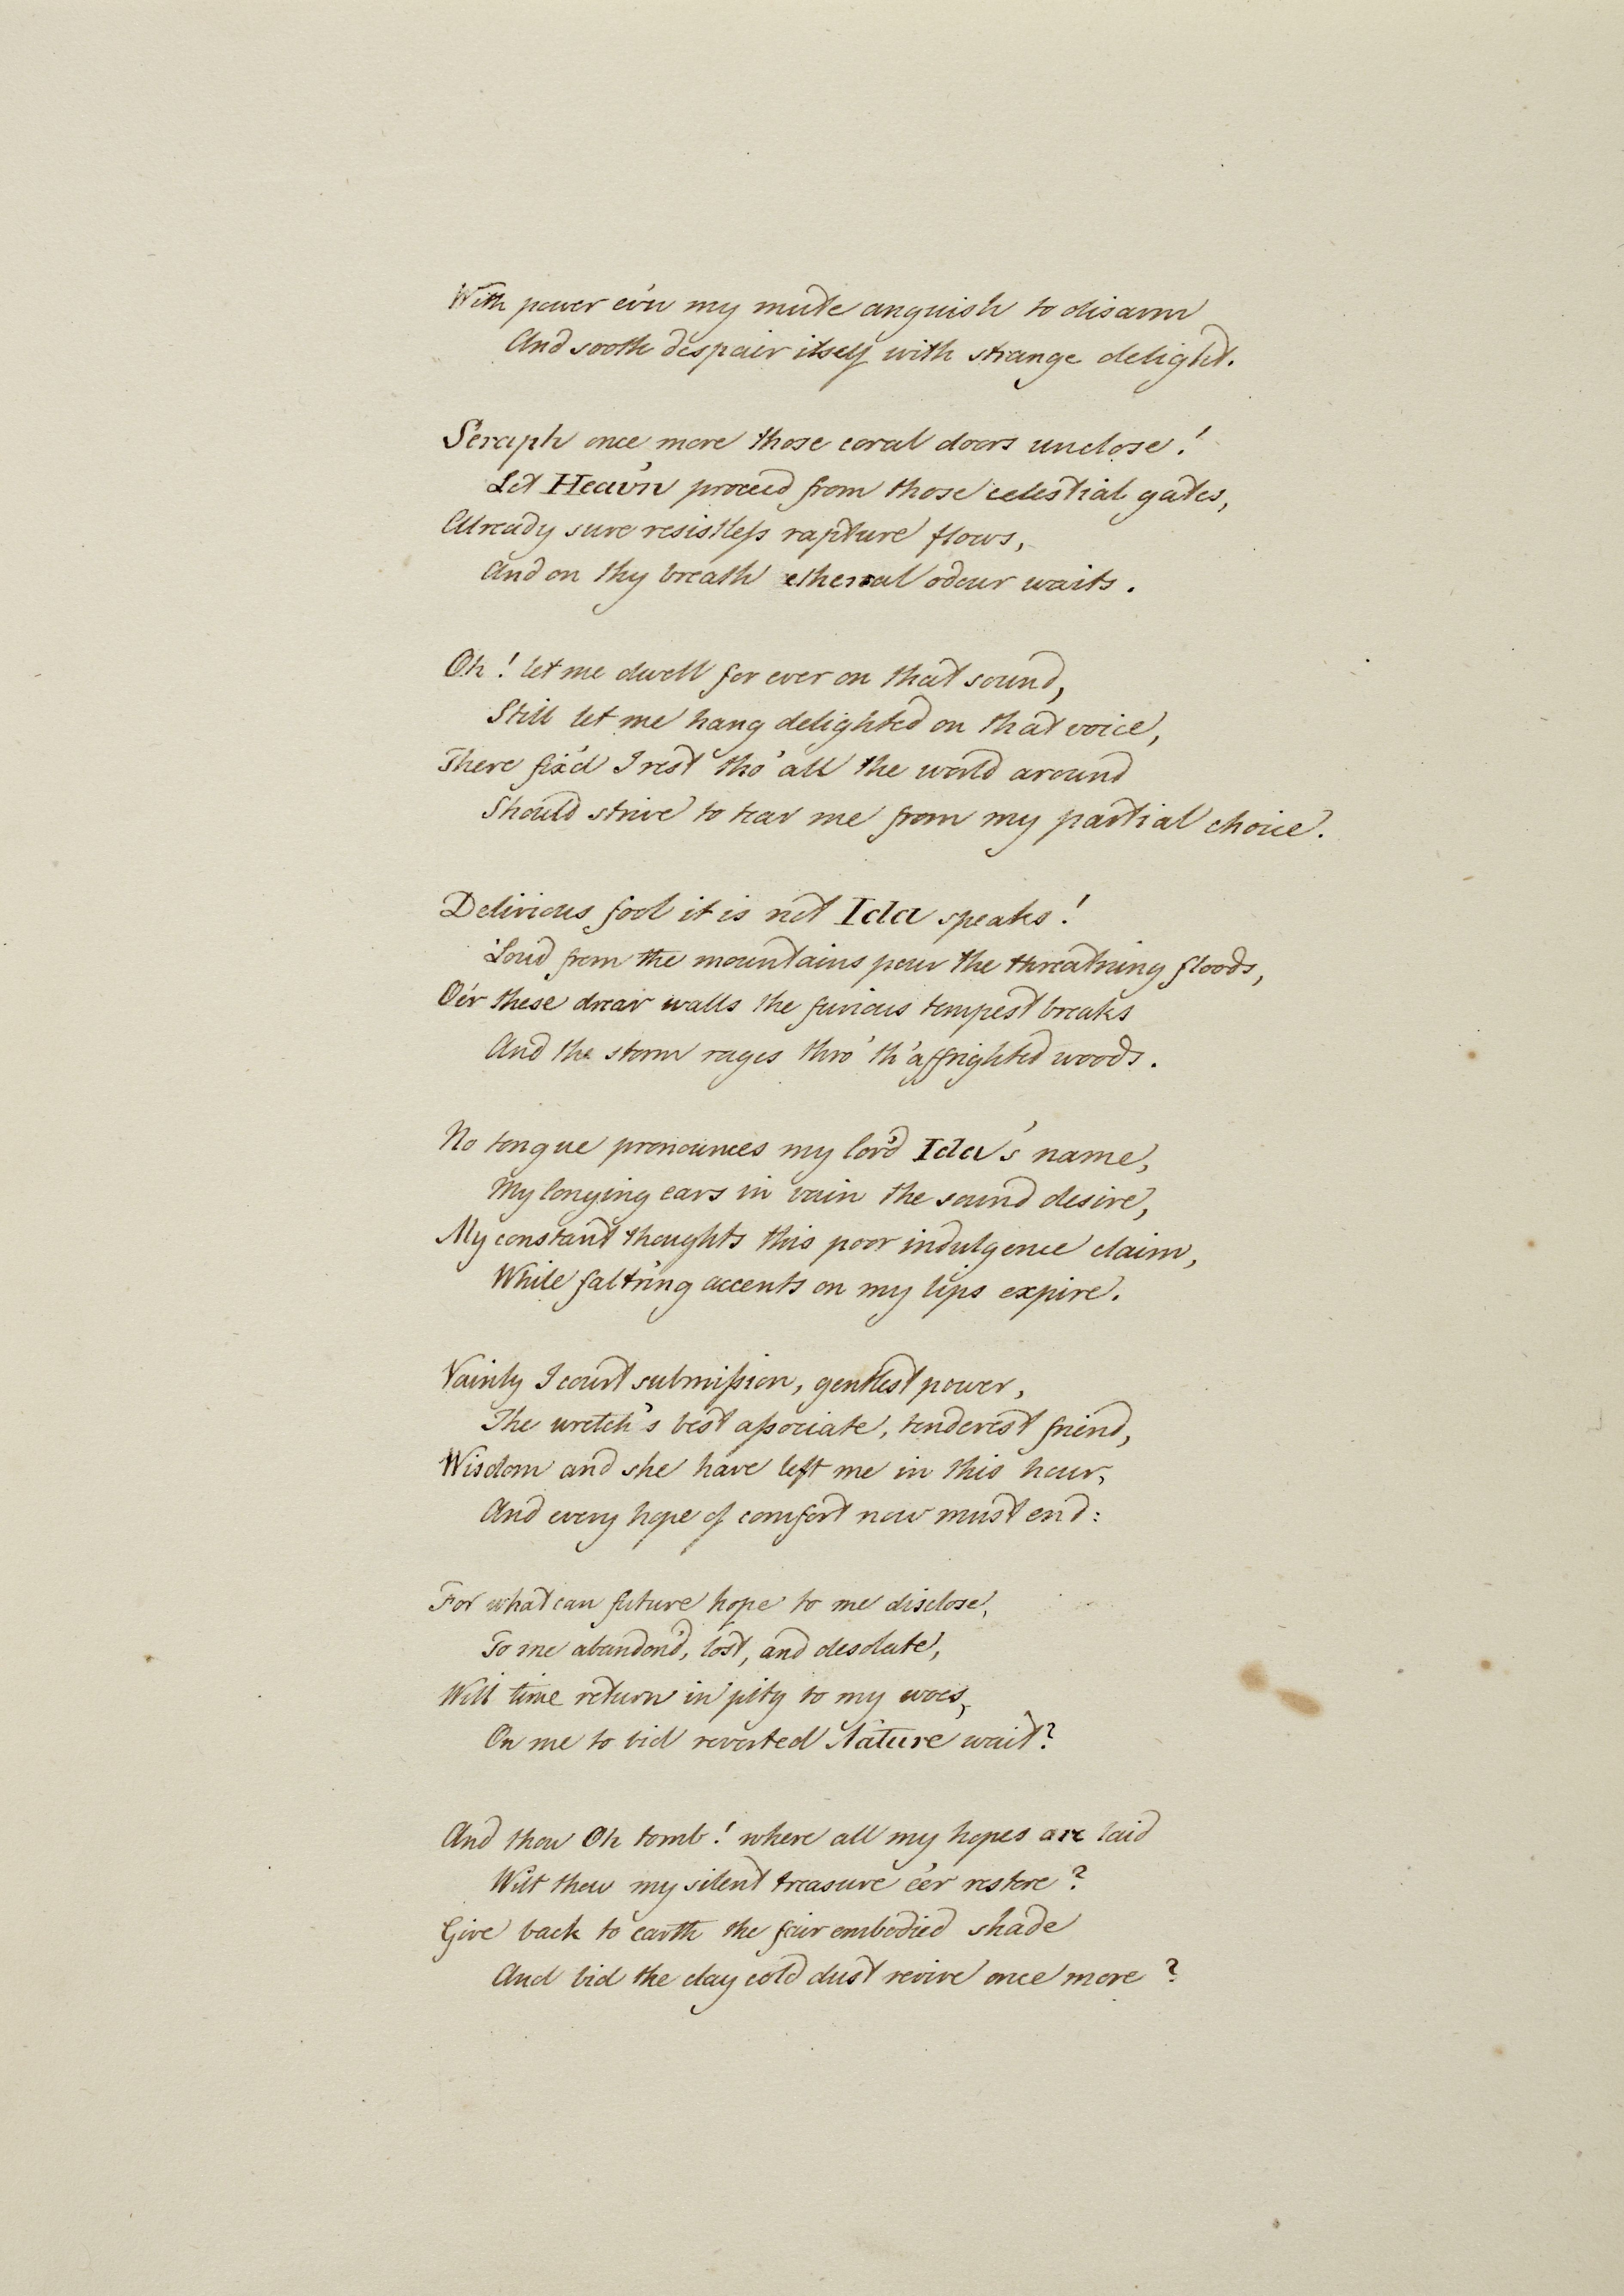 With power ev'n my mute anguish to disarm
And sooth despair itself with strange delight.
Seraph once more those coral doors unclose!
Let Heav'n proceed from those celestial gates,
Already sure resistless rapture flows,
And on thy breath etherial odour waits.
Oh! let me dwell for ever on that sound,
Still let me hang delighted on that voice,
There fix'd I rest tho' all the world around
Should strive to tear me from my partial choice.
Delirious fool it is not Ida speaks!
Loud from the mountains pour the threatning floods,
O'er these drear walls the furious tempest breaks
And the storm rages thro' th'affrighted woods.
No tongue pronounces my lov'd Ida's name,
My longing ears in vain the sound desire,
My constant thoughts this poor indulgence claim,
While falt'ring accents on my lips expire.
Vainly I court submission, gentlest power,
The wretch's best associate, tenderest friend,
Wisdom and she have left me in this hour,
And every hope of comfort now must end:
For what can future hope to me disclose,
To me abandon'd, lost, and desolate,
Will time return in pity to my woes,
On me to bid reverted Nature wait?
And thou Oh tomb! where all my hopes are laid
Wilt thou my silent treasure e'er restore?
Give back to earth the fair embodied shade
And bid the clay cold dust revive once more?